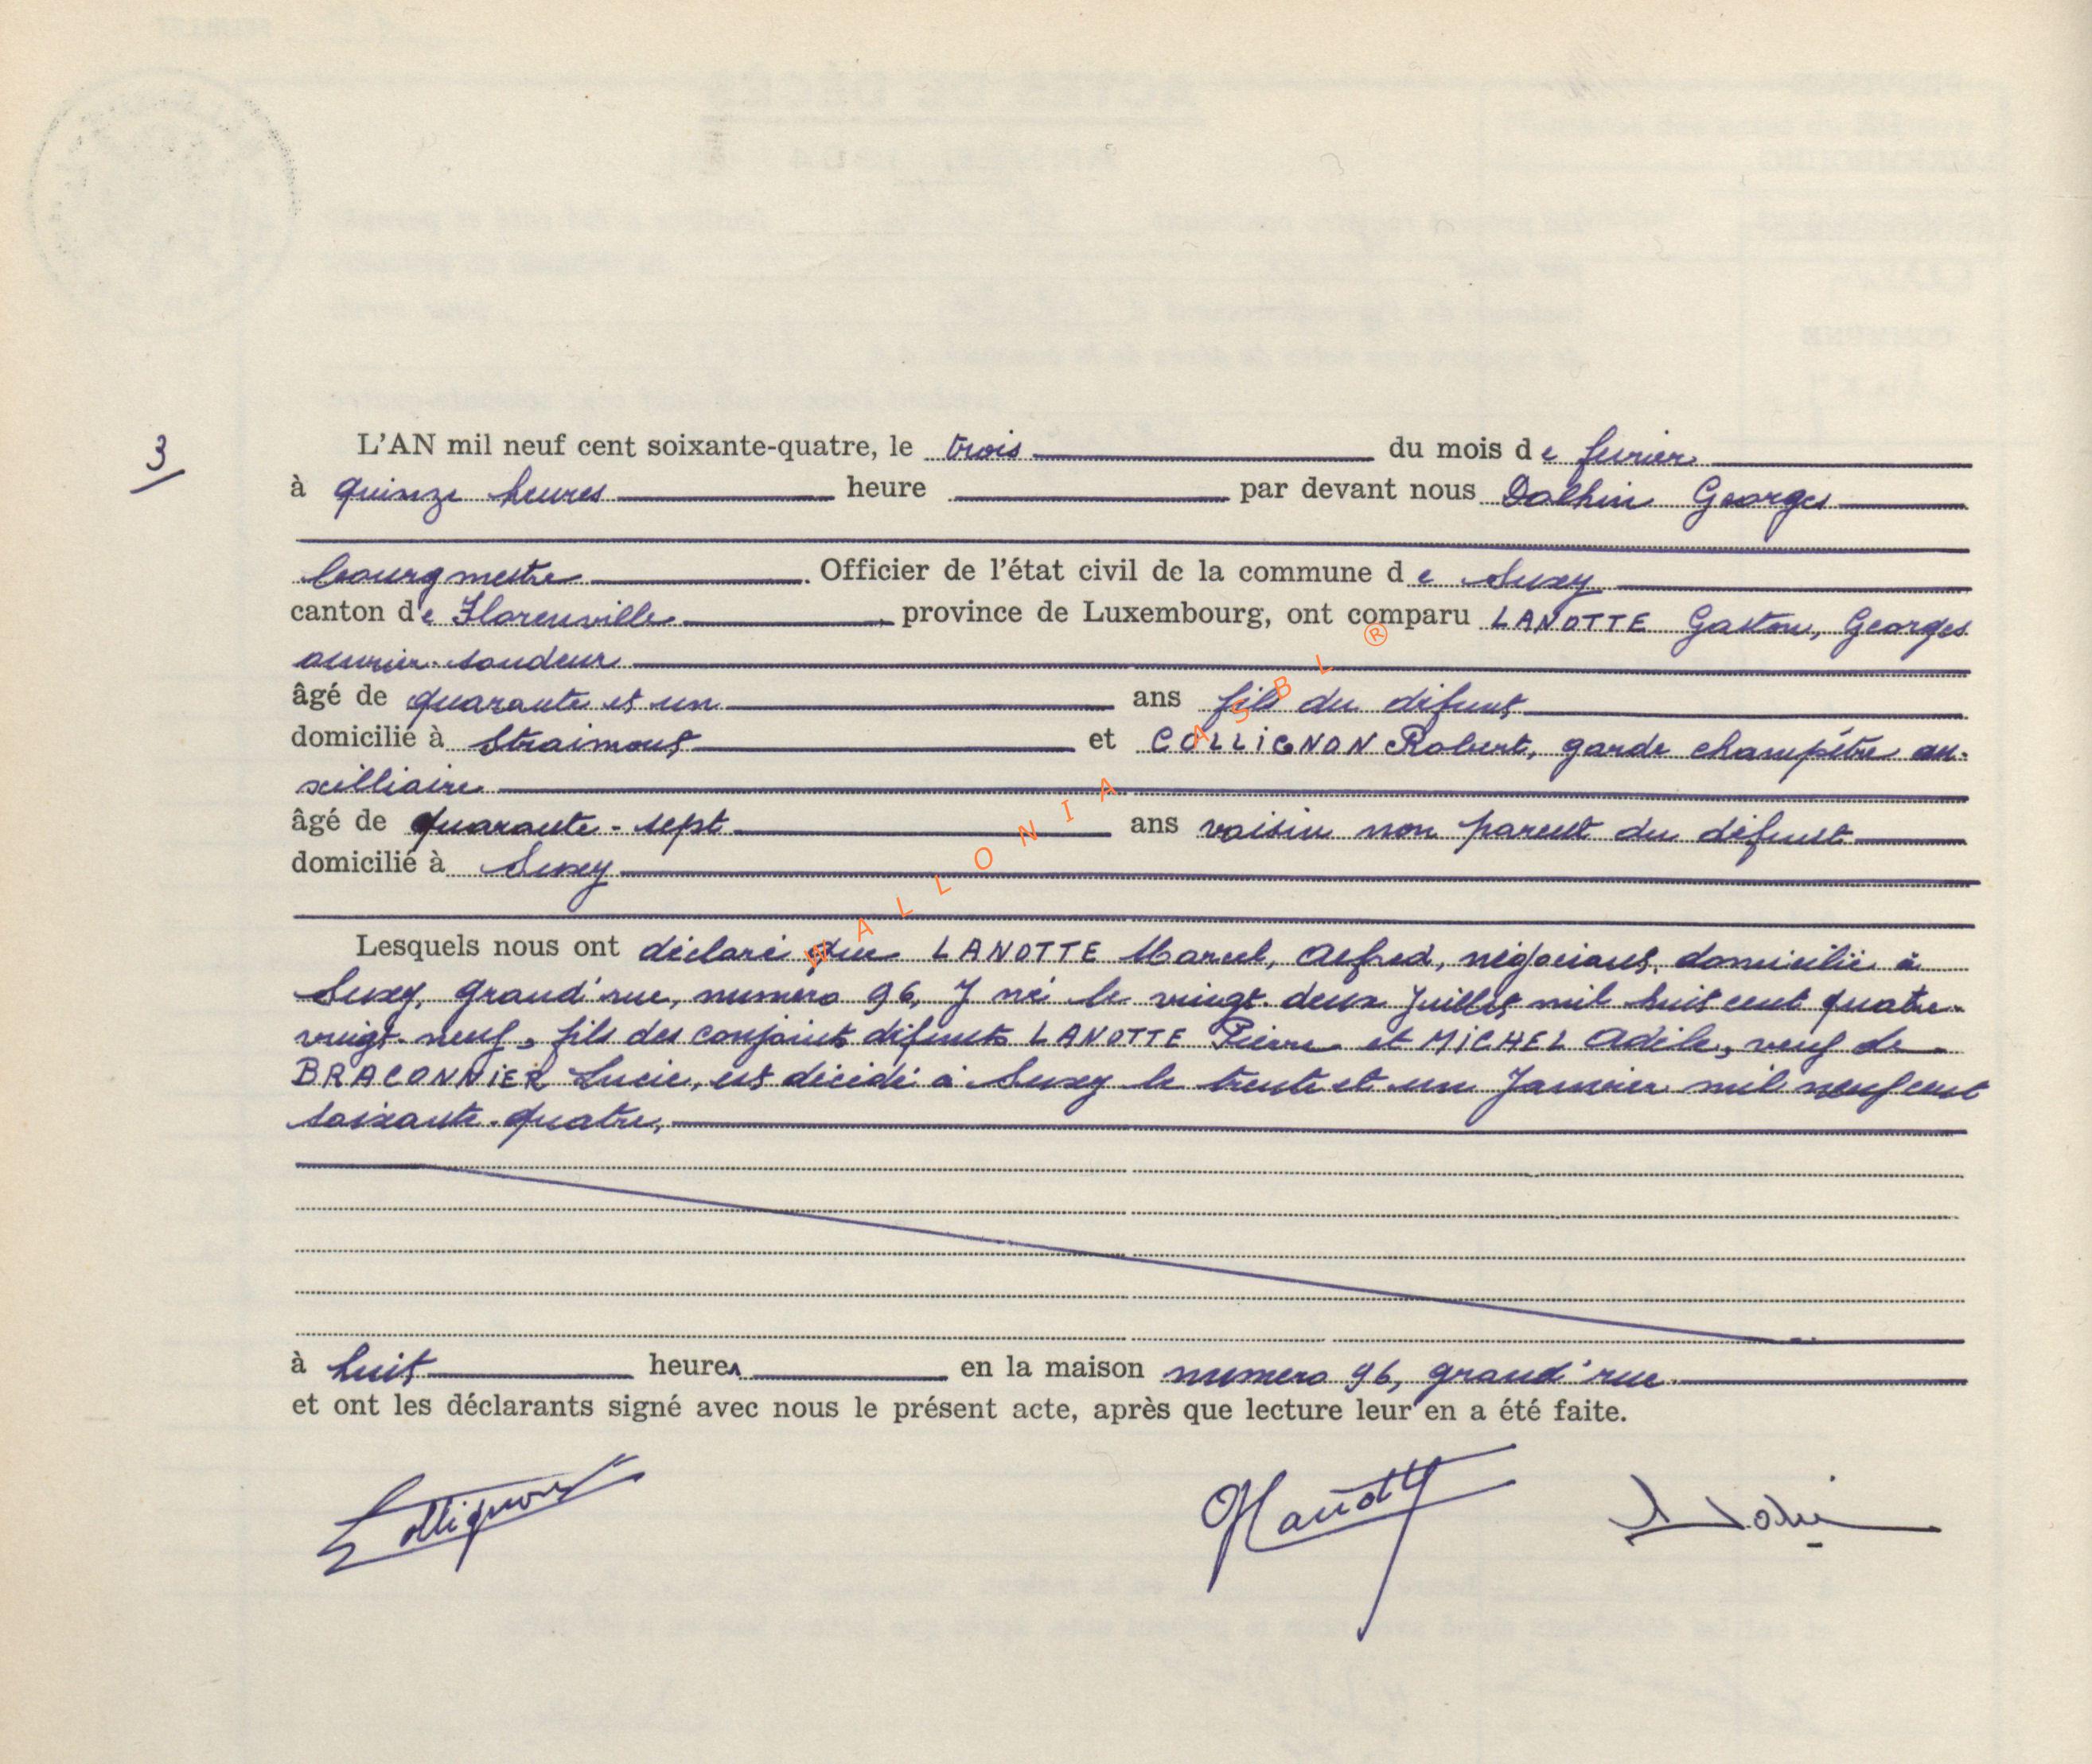 3
L'AN mil neuf cent soixante-quatre, le trois du mois de février
à quinze heures heure par devant nous Dolhin Georges
bourgmestre. Officier de l'état civil de la commune de Suxy
canton de Florenville, province de Luxembourg, ont comparu LANOTTE Gaston, Georges
ouvrier-soudeur
âgé de quarante et un ans fils du défunt
domicilié à Straimont et COLLIGNON Robert, garde champêtre au-
xilliaire
âgé de quarante-sept ans voisin non parent du défunt
domicilié à Suxy
Lesquels nous ont déclaré que LANOTTE Marcel, Alfred, négociant, domicilié à
Suxy, grand'rue, numero 96, y né le vingt-deux Juillet mil huit cent quatre-
vingt-neuf, fils des conjoints défunts LANOTTE Pierre et MICHEL Adèle, veuf de
BRACONNIER Lucie, est décédé à Suxy le trente et un Janvier mil neuf cent
soixante-quatre,
à huit heures en la maison numero 96, grand'rue.
et ont les déclarants signé avec nous le présent acte, après que lecture leur en a été faite.
Collignon GLanotte
WALLONIA ASBL ®